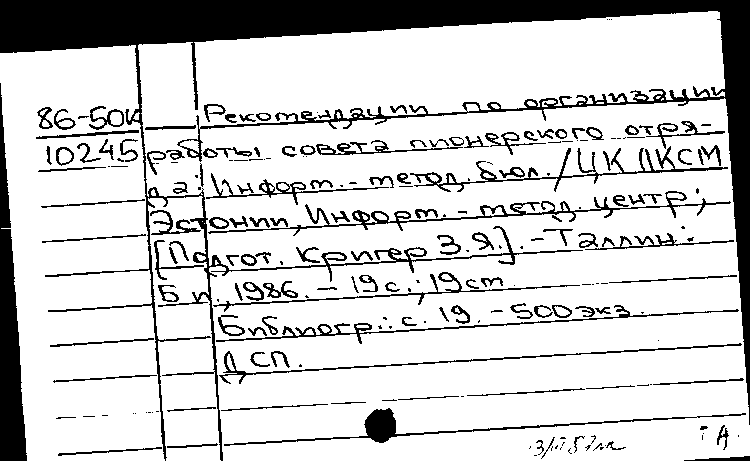 86-50к Рекомендации по организации
10245 работы совета пионерского отря-
да: Информ.-метод. бюл./ЦК ЛКСМ
Эстонии, Информ.-метод. центр;
[Подгот. Кригер З.Я.]. - Таллин:
Б и., 1986. - 19 с.; 19 см
Библиогр.: с. 19. - 500 экз.
ДСП.